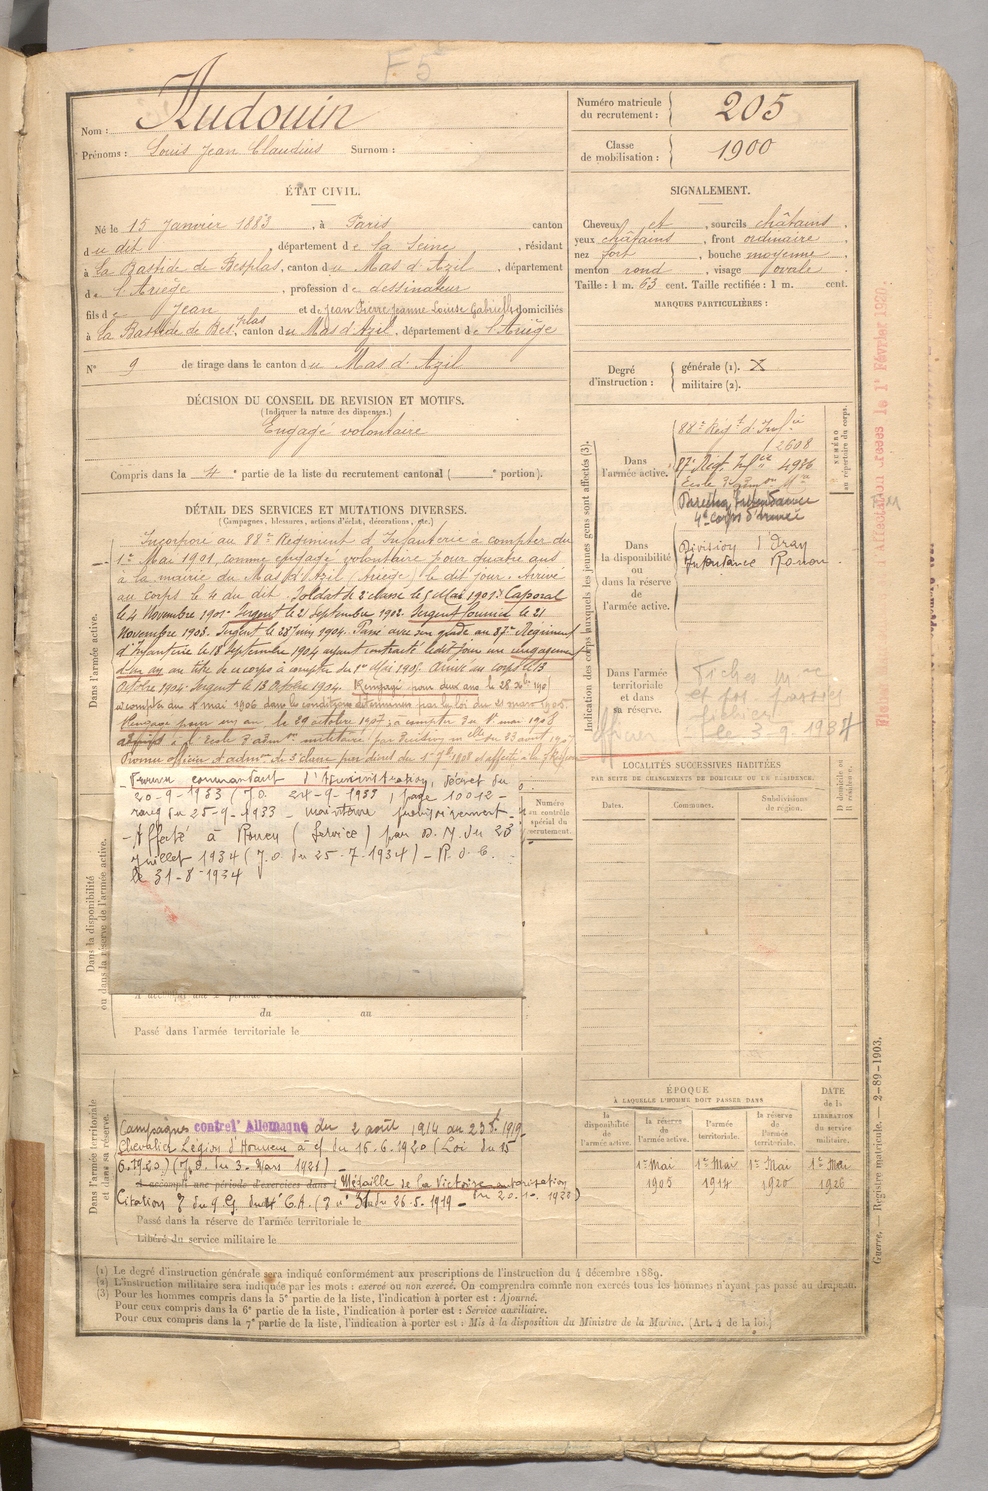 F 5
Nom : Audouin
Prénoms : Louis Jean Claudius Surnom :
Numéro matricule du recrutement : 205
Classe de mobilisation : 1900
ÉTAT CIVIL.
Né le 15 Janvier 1883, à Paris canton
du dit, département de la Seine, résidant
à La Bastide de Besplas, canton du Mas d'Azil, département
de l'Ariège, profession de dessinateur
fils de Jean et de Jean Pierre Jeanne Louise Gabrielle domiciliés
à La Bastide de Besplas, canton du Mas d'Azil, département de l'Ariège
N° 9 de tirage dans le canton du Mas d'Azil
SIGNALEMENT.
Cheveux et, sourcils châtains.
yeux châtains, front ordinaire
nez fort, bouche moyenne.
menton rond, visage ovale
Taille : 1 m. 63 cent. Taille rectifiée : 1 m. cent.
MARQUES PARTICULIÈRES :
Degré d'instruction :
générale (1). X
militaire (2).
DÉCISION DU CONSEIL DE REVISION ET MOTIFS.
(Indiquer la nature des dispenses.)
Engagé volontaire
Compris dans la 4e partie de la liste du recrutement cantonal ( e portion).
DÉTAIL DES SERVICES ET MUTATIONS DIVERSES.
(Campagnes, blessures, actions d'éclat, décorations, etc.)
Dans l'armée active.
Incorporé au 88e Régiment d'Infanterie à compter du
1er Mai 1901, comme engagé volontaire pour quatre ans
à la mairie du Mas d'Azil (Ariège) le dit jour. Arrivé
au corps le 4 du dit. Soldat de 2e classe le 5 Mai 1901. Caporal
le 4 Novembre 1901. Sergent le 21 Septembre 1902. Sergent fourrier le 21
Novembre 1903. Sergent le 28 Juin 1904. Passé avec son grade au 87e Régiment
d'Infanterie le 18 Septembre 1904 ayant contracté ledit jour un rengagement
d'un an au titre de ce corps à compter du 1er Mai 1905. Arrivé au corps le 13
Octobre 1904. Sergent le 13 Octobre 1904. Rengagé pour deux ans le 28
à compter du 1er mai 1906 dans les conditions déterminées par la loi du 21 mars 1905.
Rengagé pour un an le 29 octobre 1907, à compter du 1er mai 1908
à l'école d'admon militaire par décision mlle du 23 août
Promu officier d'admon de 3e classe par décret du 1er 7bre 1908 et affecté à la 7e Région
Promu commandant d'Administration, décret du
20-9-1933 (J.O. 24-9-1933, page 10012 -
rang du 25-9-1933 - maintenu provisoirement -
- Affecté à Rouen (Service) par D. M. du 23
juillet 1934 (J.O. du 25-7-1934) -
le 31-8-1934
Dans la disponibilité ou dans la réserve de l'armée active.
du au
Passé dans l'armée territoriale le
Dans l'armée territoriale et dans sa réserve.
Campagnes contre l'Allemagne du 2 août 1914 au 23 1919-
Chevalier Légion d'Honneur à cf du 16.6.1920 (Loi du 15
6.1920) (J.O. du 3 Mars 1921) -
A accompli une période d'exercices dans l Médaille de la Victoire autorisation
Citation G.A. (26.5.1919 -
Passé dans la réserve de l'armée territoriale le
Libéré du service militaire le
Indication des corps auxquels les jeunes gens sont affectés (3).
NUMÉRO au répertoire du corps.
Dans l'armée active.
88e Régt d'Infie
12608
87e Régt Infie 4986
Ecole d'admon Mre
4e corps d'armée
Dans la disponibilité ou dans la réserve de l'armée active.
Division
Intendance Rouen.
Dans l'armée territoriale et dans sa réserve.
Officier
le 3-9-1937
LOCALITÉS SUCCESSIVES HABITÉES
PAR SUITE DE CHANGEMENTS DE DOMICILE OU DE RÉSIDENCE.
Numéro au contrôle spécial du recrutement.
Dates. Communes. Subdivisions de région. D domicile ou R résidence.
ÉPOQUE
À LAQUELLE L'HOMME DOIT PASSER DANS
DATE de la LIBÉRATION du service militaire.
la disponibilité de l'armée active. la réserve de l'armée active. l'armée territoriale. la réserve de l'armée territoriale.
1er Mai 1er Mai 1er Mai 1er Mai
1905 1914 1920 1926
(1) Le degré d'instruction générale sera indiqué conformément aux prescriptions de l'instruction du 4 décembre 1889.
(2) L'instruction militaire sera indiquée par les mots : exercé ou non exercé. On comprendra comme non exercés tous les hommes n'ayant pas passé au drapeau.
(3) Pour les hommes compris dans la 5e partie de la liste, l'indication à porter est : Ajourné.
Pour ceux compris dans la 6e partie de la liste, l'indication à porter est : Service auxiliaire.
Pour ceux compris dans la 7e partie de la liste, l'indication à porter est : Mis à la disposition du Ministre de la Marine. (Art. 4 de la loi.)
Guerre. — Registre matricule. — 2-89-1903.